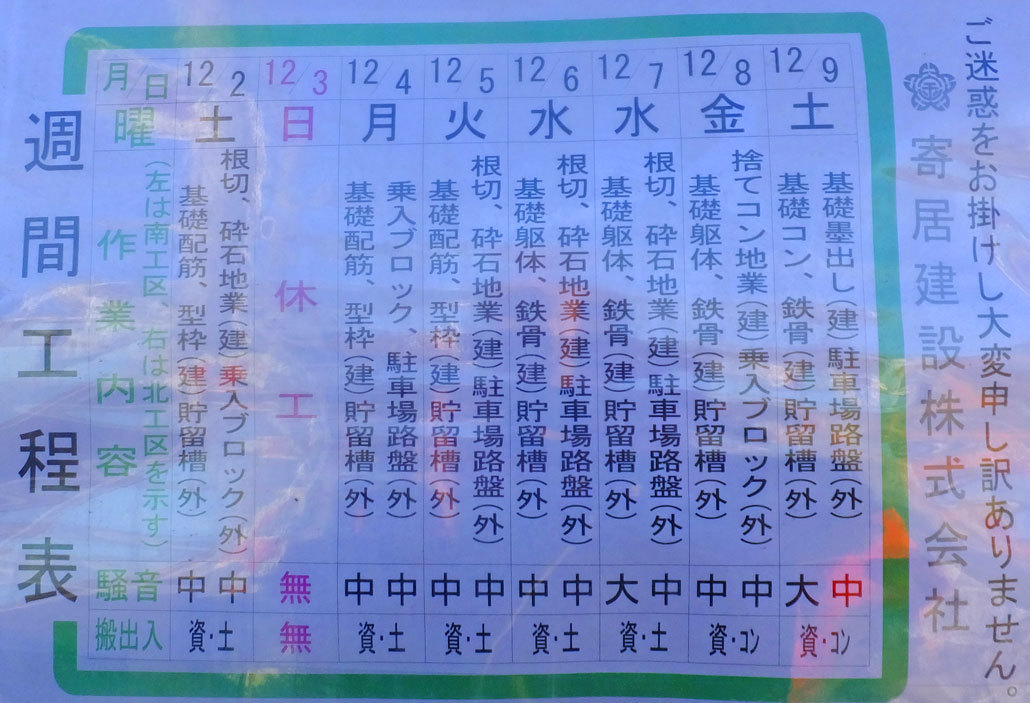 週間工程表
月/日 12/2 12/3 12/4 12/5 12/6 12/7 12/8 12/9
曜 土 日 月 火 水 水 金 土
作業内容
(左は南工区、右は北工区を示す)
基礎配筋、型枠(建)貯留槽(外)
根切、砕石地業(建)乗入ブロック(外)
休工
基礎配筋、型枠(建)貯留槽(外)
乗入ブロック、駐車場路盤(外)
基礎配筋、型枠(建)貯留槽(外)
根切、砕石地業(建)駐車場路盤(外)
基礎躯体、鉄骨(建)貯留槽(外)
根切、砕石地業(建)駐車場路盤(外)
基礎躯体、鉄骨(建)貯留槽(外)
根切、砕石地業(建)駐車場路盤(外)
基礎躯体、鉄骨(建)貯留槽(外)
捨てコン地業(建)乗入ブロック(外)
基礎コン、鉄骨(建)貯留槽(外)
基礎墨出し(建)駐車場路盤(外)
騒音 中 中 無 中 中 中 中 中 中 大 中 中 中 大 中
搬出入 資・土 無 資・土 資・土 資・土 資・土 資・コン 資・コン
金
寄居建設株式会社
ご迷惑をお掛けし大変申し訳ありません。